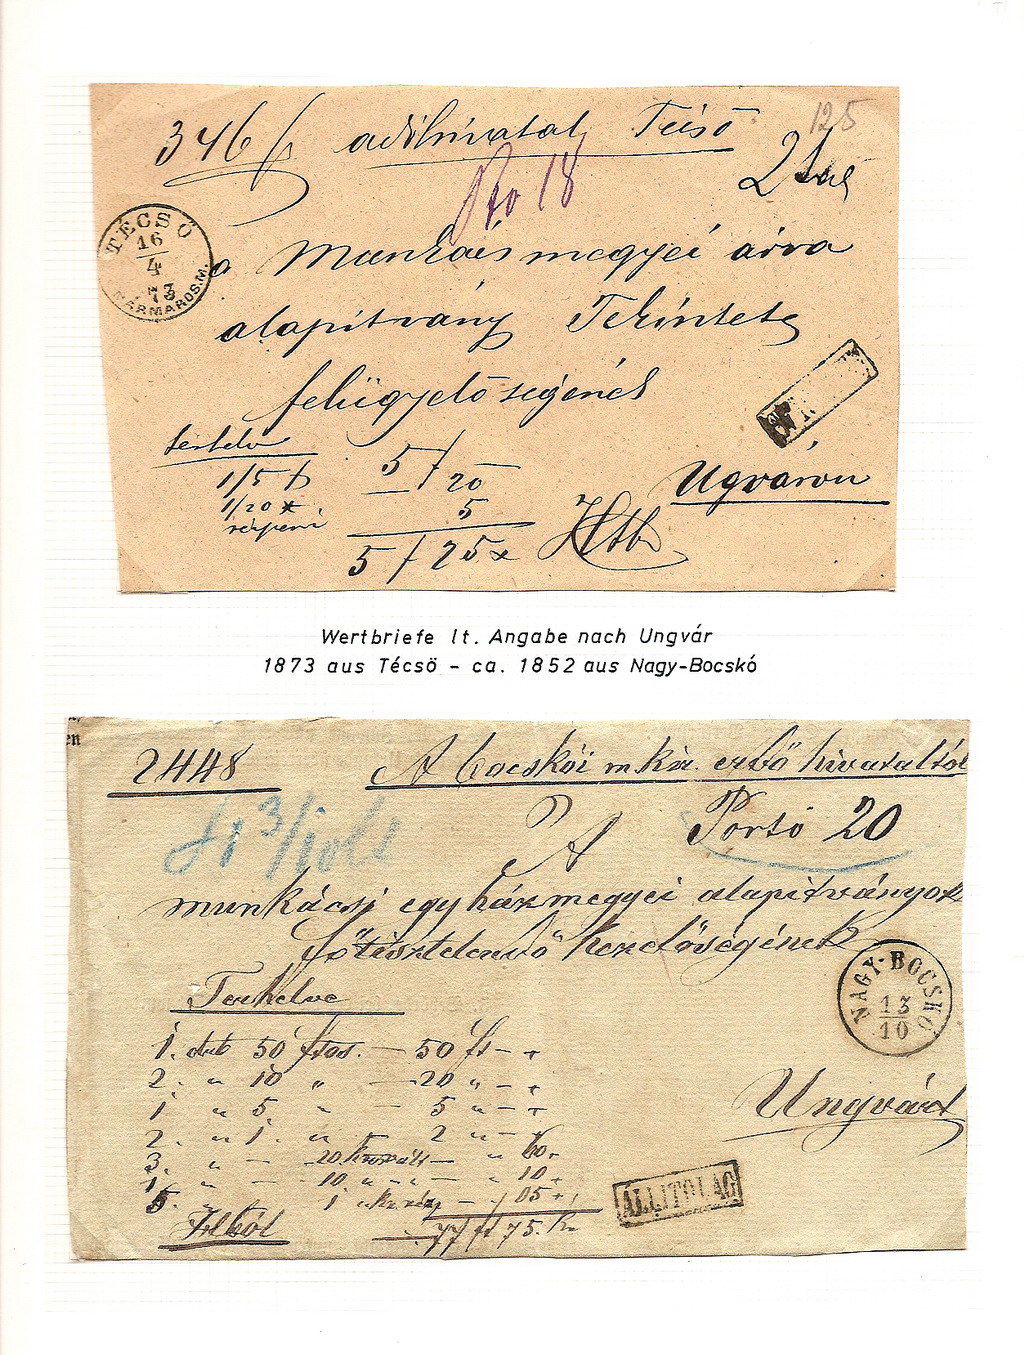 125
346 adóhivatal Técső
2
Pto 18
TÉCSŐ
16
4
73
MÁRMAROS.M.
a Munkácsmegyei árva
alapítvány Tekintetes
felügyelőségének
terhelve
1/5 f
1/20 x
5 f 20
5
5 f 25 x
Ungváron
Wertbriefe lt. Angabe nach Ungvár
1873 aus Técsö - ca. 1852 aus Nagy-Bocskó
en
2448
A bocskói m kir. erdő hivataltól
A
Portó 20
3
munkácsi egyházmegyei alapítványok
főtisztelendő kezelőségének
NAGY-BOCSKÓ
13
10
Terhelve
1. drb 50 ftos. — 50 ft - +
2. " 10 " — 20 " - +
1 " 5. " — 5 " - +
2. " 1. " — 2 " - +
3. " — 20 — " 60.
1. " — 10 " — 10
5. " 1 — 05
77 ft 75. kr
Ungvárt
ÁLLITÓLAG